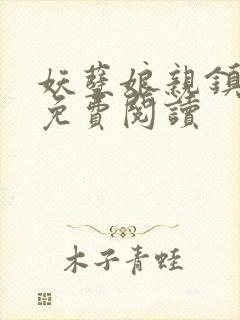 妖孽娘親鎮
免費閱讀
木子青蛙